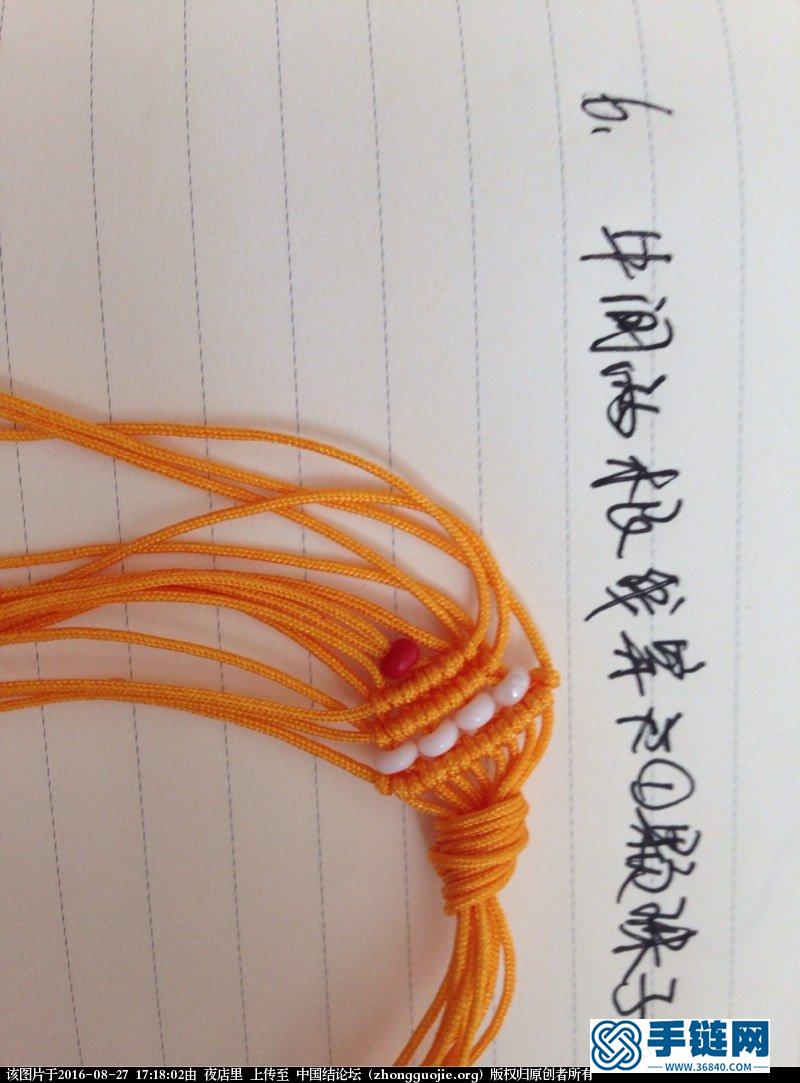 6. 中间两根线穿入①颗珠子
手链网
WWW.36840.COM
该图片于2016-08-27 17:18:02由 夜店里 上传至 中国结论坛 (zhongguojie.org) 版权归原创者所有